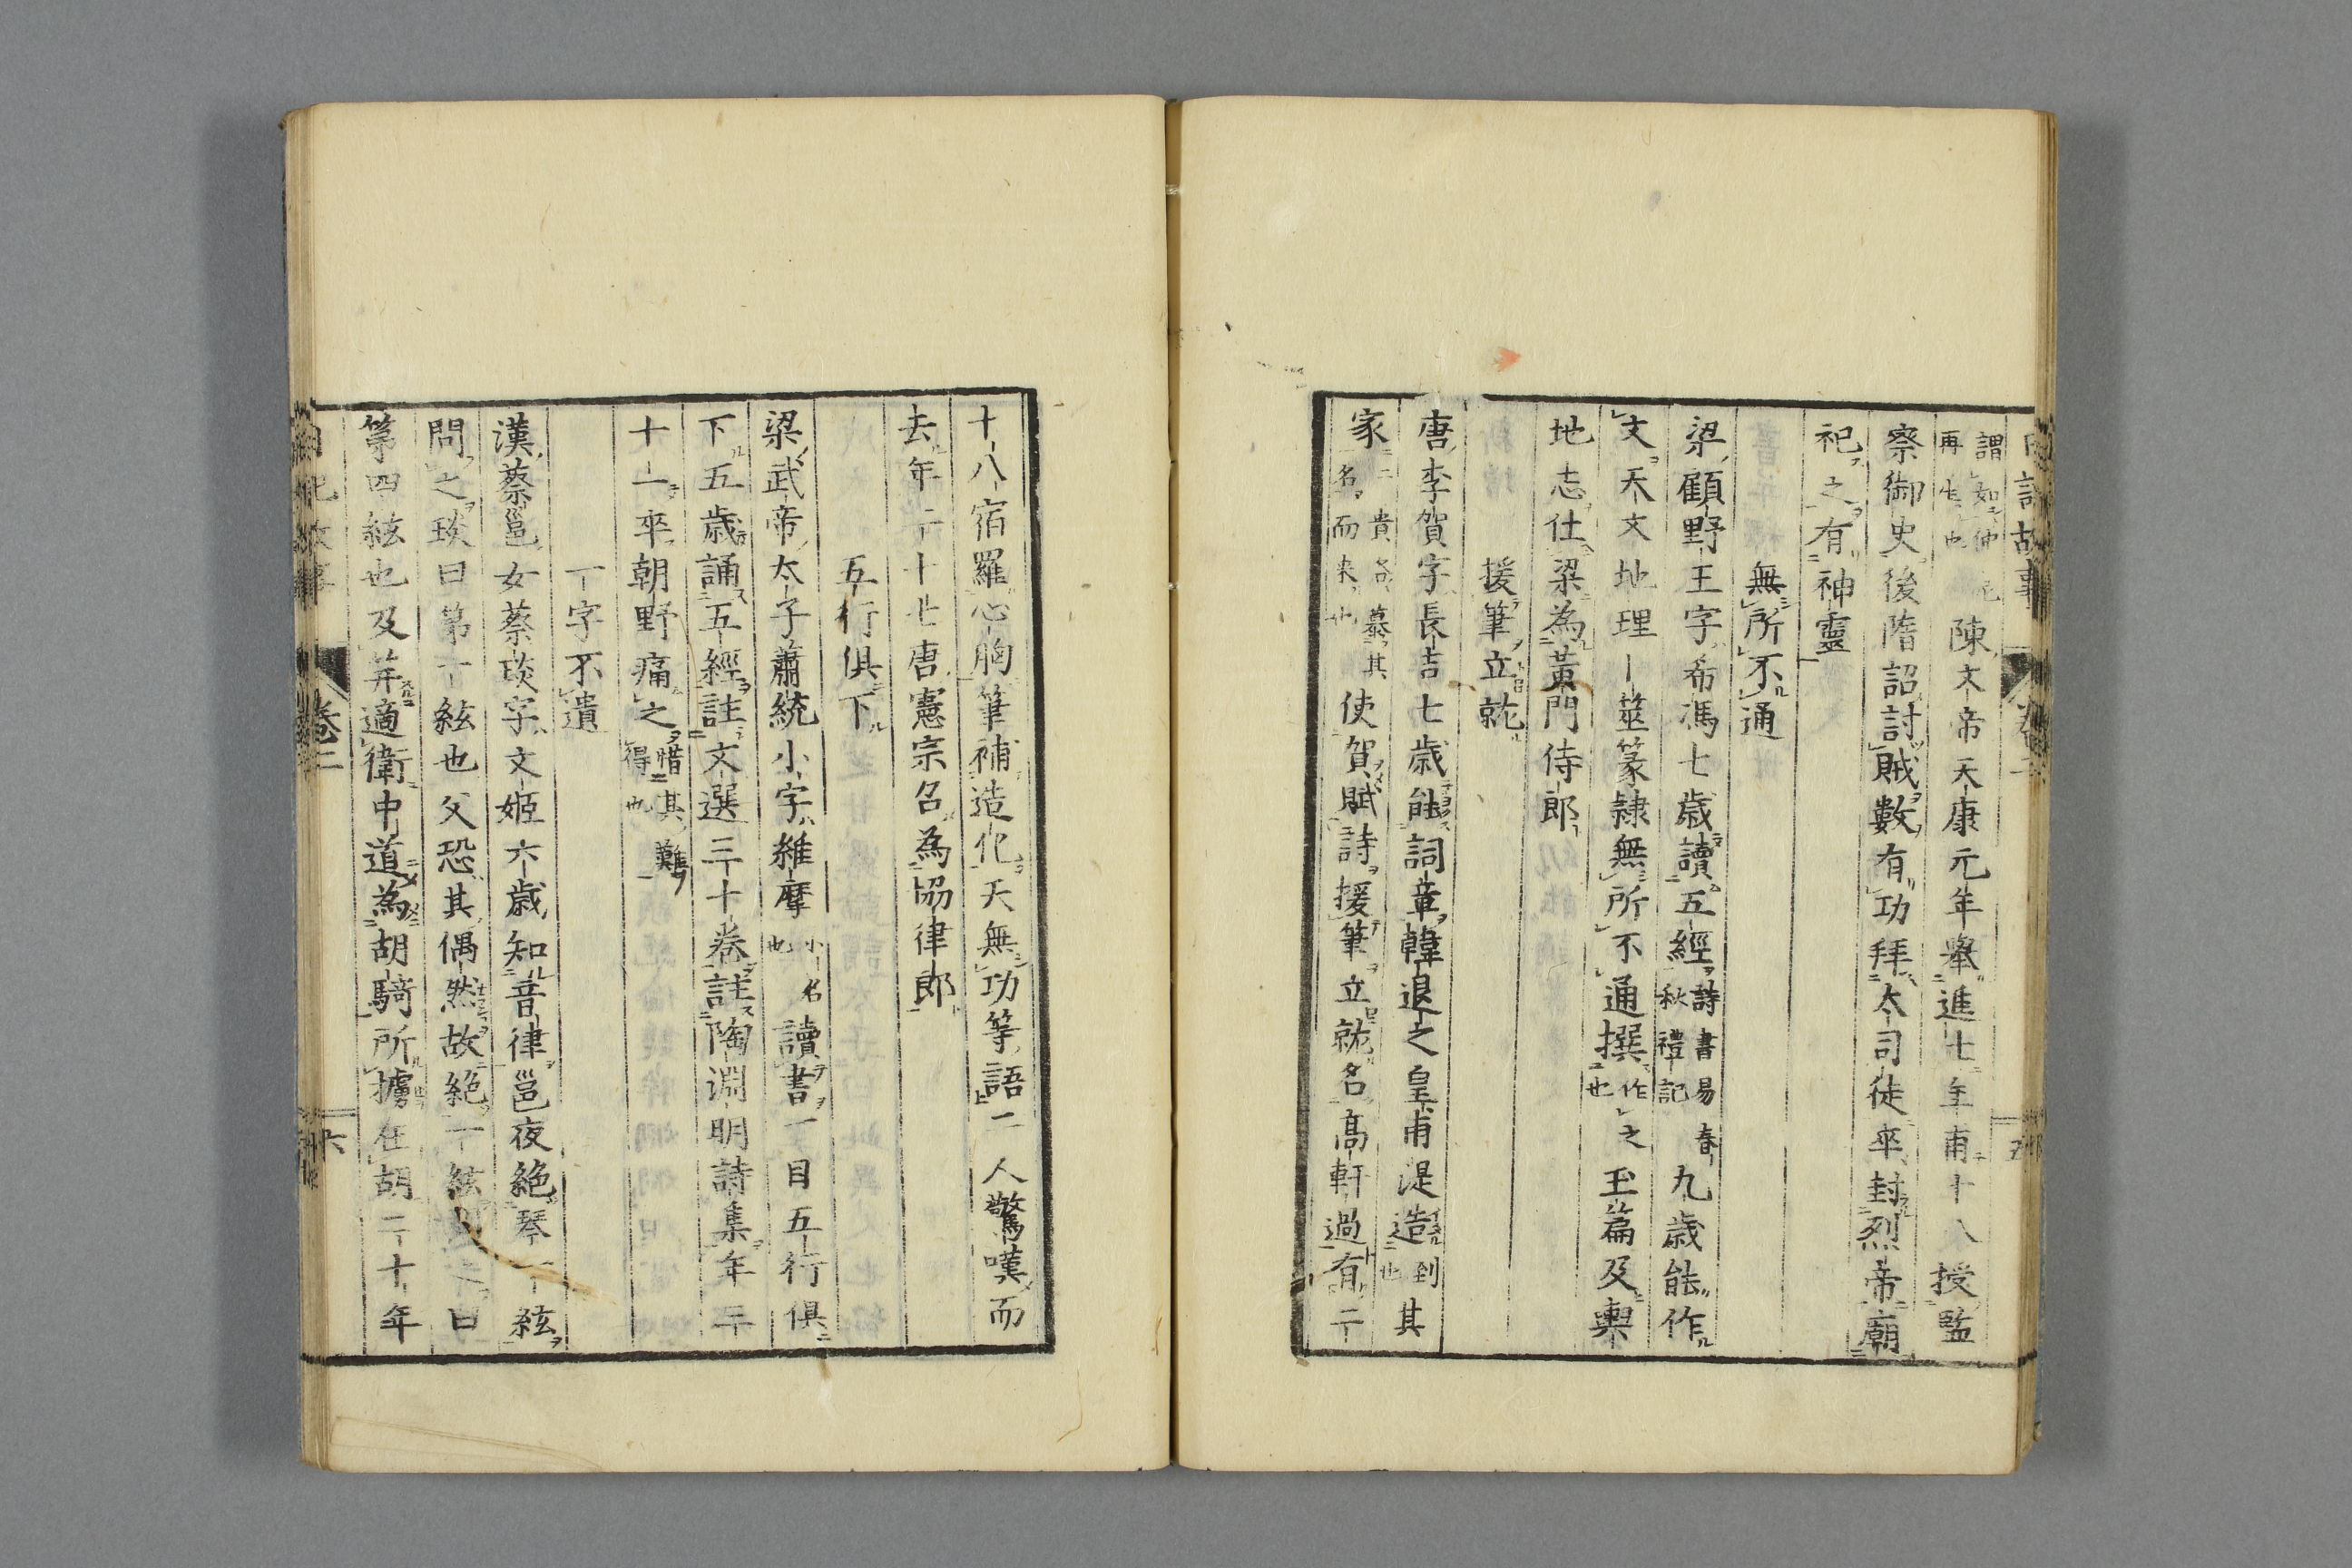 謂如仲尼再生也陳文帝天康元年舉進士年甫十八授監
察御史後隋詔討賊數有功拜太司徒卒封烈帝廟
祀之有神靈
無所不通
梁顧野王字希馮七歲讀五經詩書易春秋禮記九歲能作
文天文地理筮篆隸無所不通撰作也之玉篇及輿
地志仕梁為黃門侍郎
援筆立就
唐李賀字長吉七歲能詞章韓退之皇甫湜造到也其
家二貴客慕其名而来也使賀賦詩援筆立就名高軒過有二
十八宿羅心胸筆補造化天無功等語二人驚嘆而
去年二十七唐憲宗召為協律郎
五行俱下
梁武帝太子蕭統小字維摩小名也讀書一目五行俱
下五歲誦五經註文選三十卷註陶淵明詩集年三
十一卒朝野痛之惜其難得也
一字不遺
漢蔡邕女蔡琰字文姬六歲知音律邕夜絕琴一絃
問之琰曰第一絃也父恐其偶然故絕一絃問之曰
第四絃也及笄適衛中道為胡騎所擄在胡二十年
卷二
六